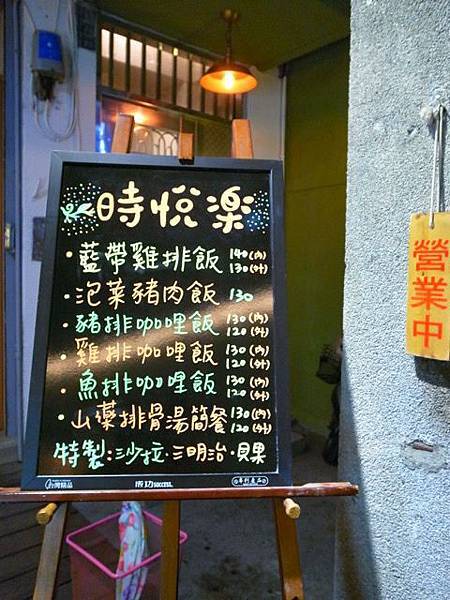 時悅楽
・藍帶雞排飯 140(內) 130(外)
・泡菜豬肉飯 130
・豬排咖哩飯 130(內) 120(外)
・雞排咖哩飯 130(內) 120(外)
・魚排咖哩飯 130(內) 120(外)
・山藥排骨湯簡餐 130(內) 120(外)
特製:沙拉・三明治・貝果
台灣精品
成功 success
專利產品
營業中